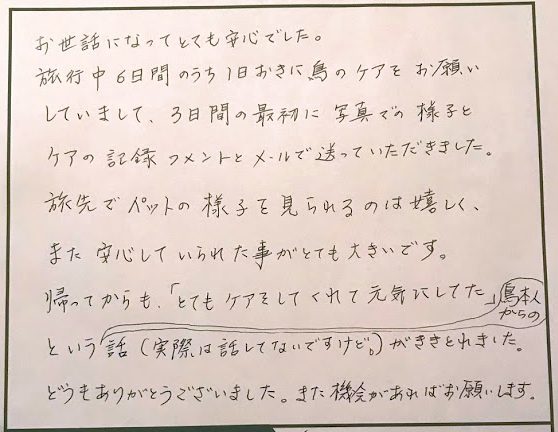 お世話になってとても安心でした。
旅行中6日間のうち1日おきに鳥のケアをお願い
していまして、3日間の最初に写真での様子と
ケアの記録コメントとメールで送っていただきました。
旅先でペットの様子を見られるのは嬉しく、
また安心していられた事がとても大きいです。
帰ってからも、「とてもケアをしてくれて元気にしてた」鳥本人からの
という話(実際は話してないですけど。)がききとれました。
どうもありがとうございました。また機会があればお願いします。